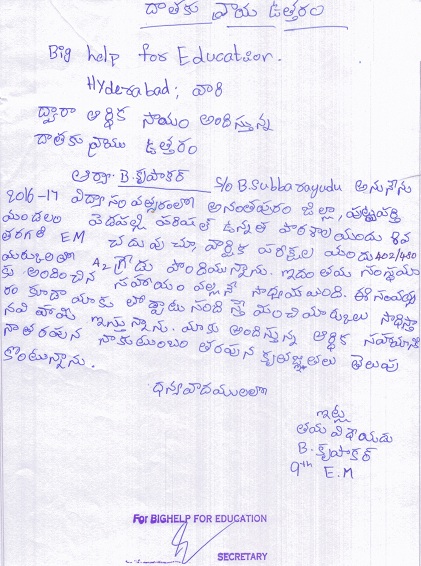 దాతకు వ్రాయు ఉత్తరం
Big help for Education.
Hyderabad; వారి
ద్వారా ఆర్థిక సాయం అందిస్తున్న
దాతకు వ్రాయు ఉత్తరం
ఆర్యా B.కృపాకర్ S/o B.Subbarayudu అను నేను
2016-17 విద్యా సంవత్సరంలో అనంతపురం జిల్లా, పుట్టపర్తి
మండలం పెడపల్లి పరిషత్ ఉన్నత పాఠశాల యందు 8వ
తరగతి EM చదువుచూ, వార్షిక పరీక్షల యందు 402/480
మార్కులతో A2 గ్రేడు పొందియున్నాను. ఇదంతయు సంస్థవా
రు అందించిన సహాయం వల్లనే సాధ్యమయింది. ఈ సంవత్స
రం కూడా మాకు తోడ్పాటునందిస్తే మంచి మార్కులు సాధిస్తా
నని హామీ ఇస్తున్నాను. మాకు అందిస్తున్న ఆర్థిక సహాయానికి
నా తరపున నా కుటుంబం తరపున కృతజ్ఞతలు తెలుపు
కొంటున్నాను.
ధన్యవాదములతో
ఇట్లు
తమ విధేయుడు
B. కృపాకర్
9th E.M
For BIGHELP FOR EDUCATION
SECRETARY